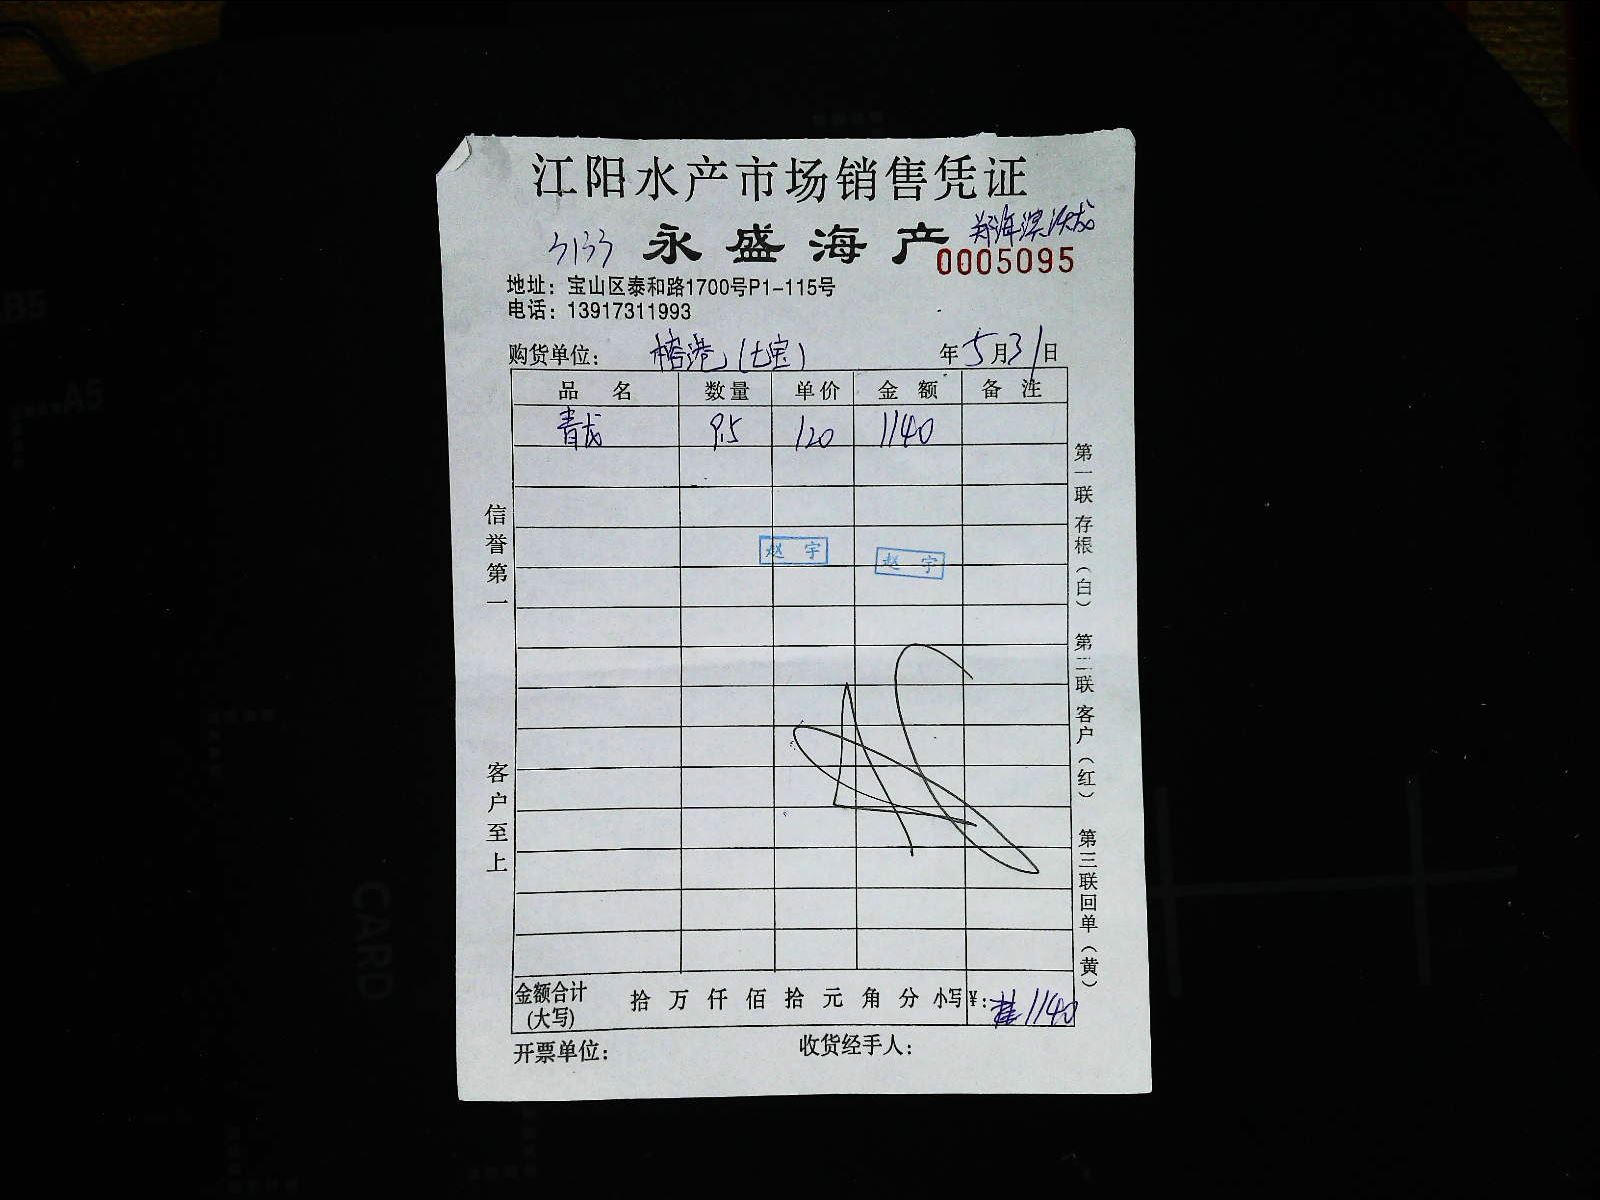 江阳水产市场销售凭证
3133 永盛海产
0005095
地址：宝山区泰和路1700号P1-115号
电话：13917311993
购货单位： 榕港（七宝） 年5月31日
品名 数量 单价 金额 备注
青龙 9.5 120 1140
赵宇 赵宇
信誉第一 客户至上
第一联存根（白） 第二联客户（红） 第三联回单（黄）
金额合计（大写） 拾万仟佰拾元角分 小写¥： 1140
开票单位： 收货经手人：
CARD
A5
B5